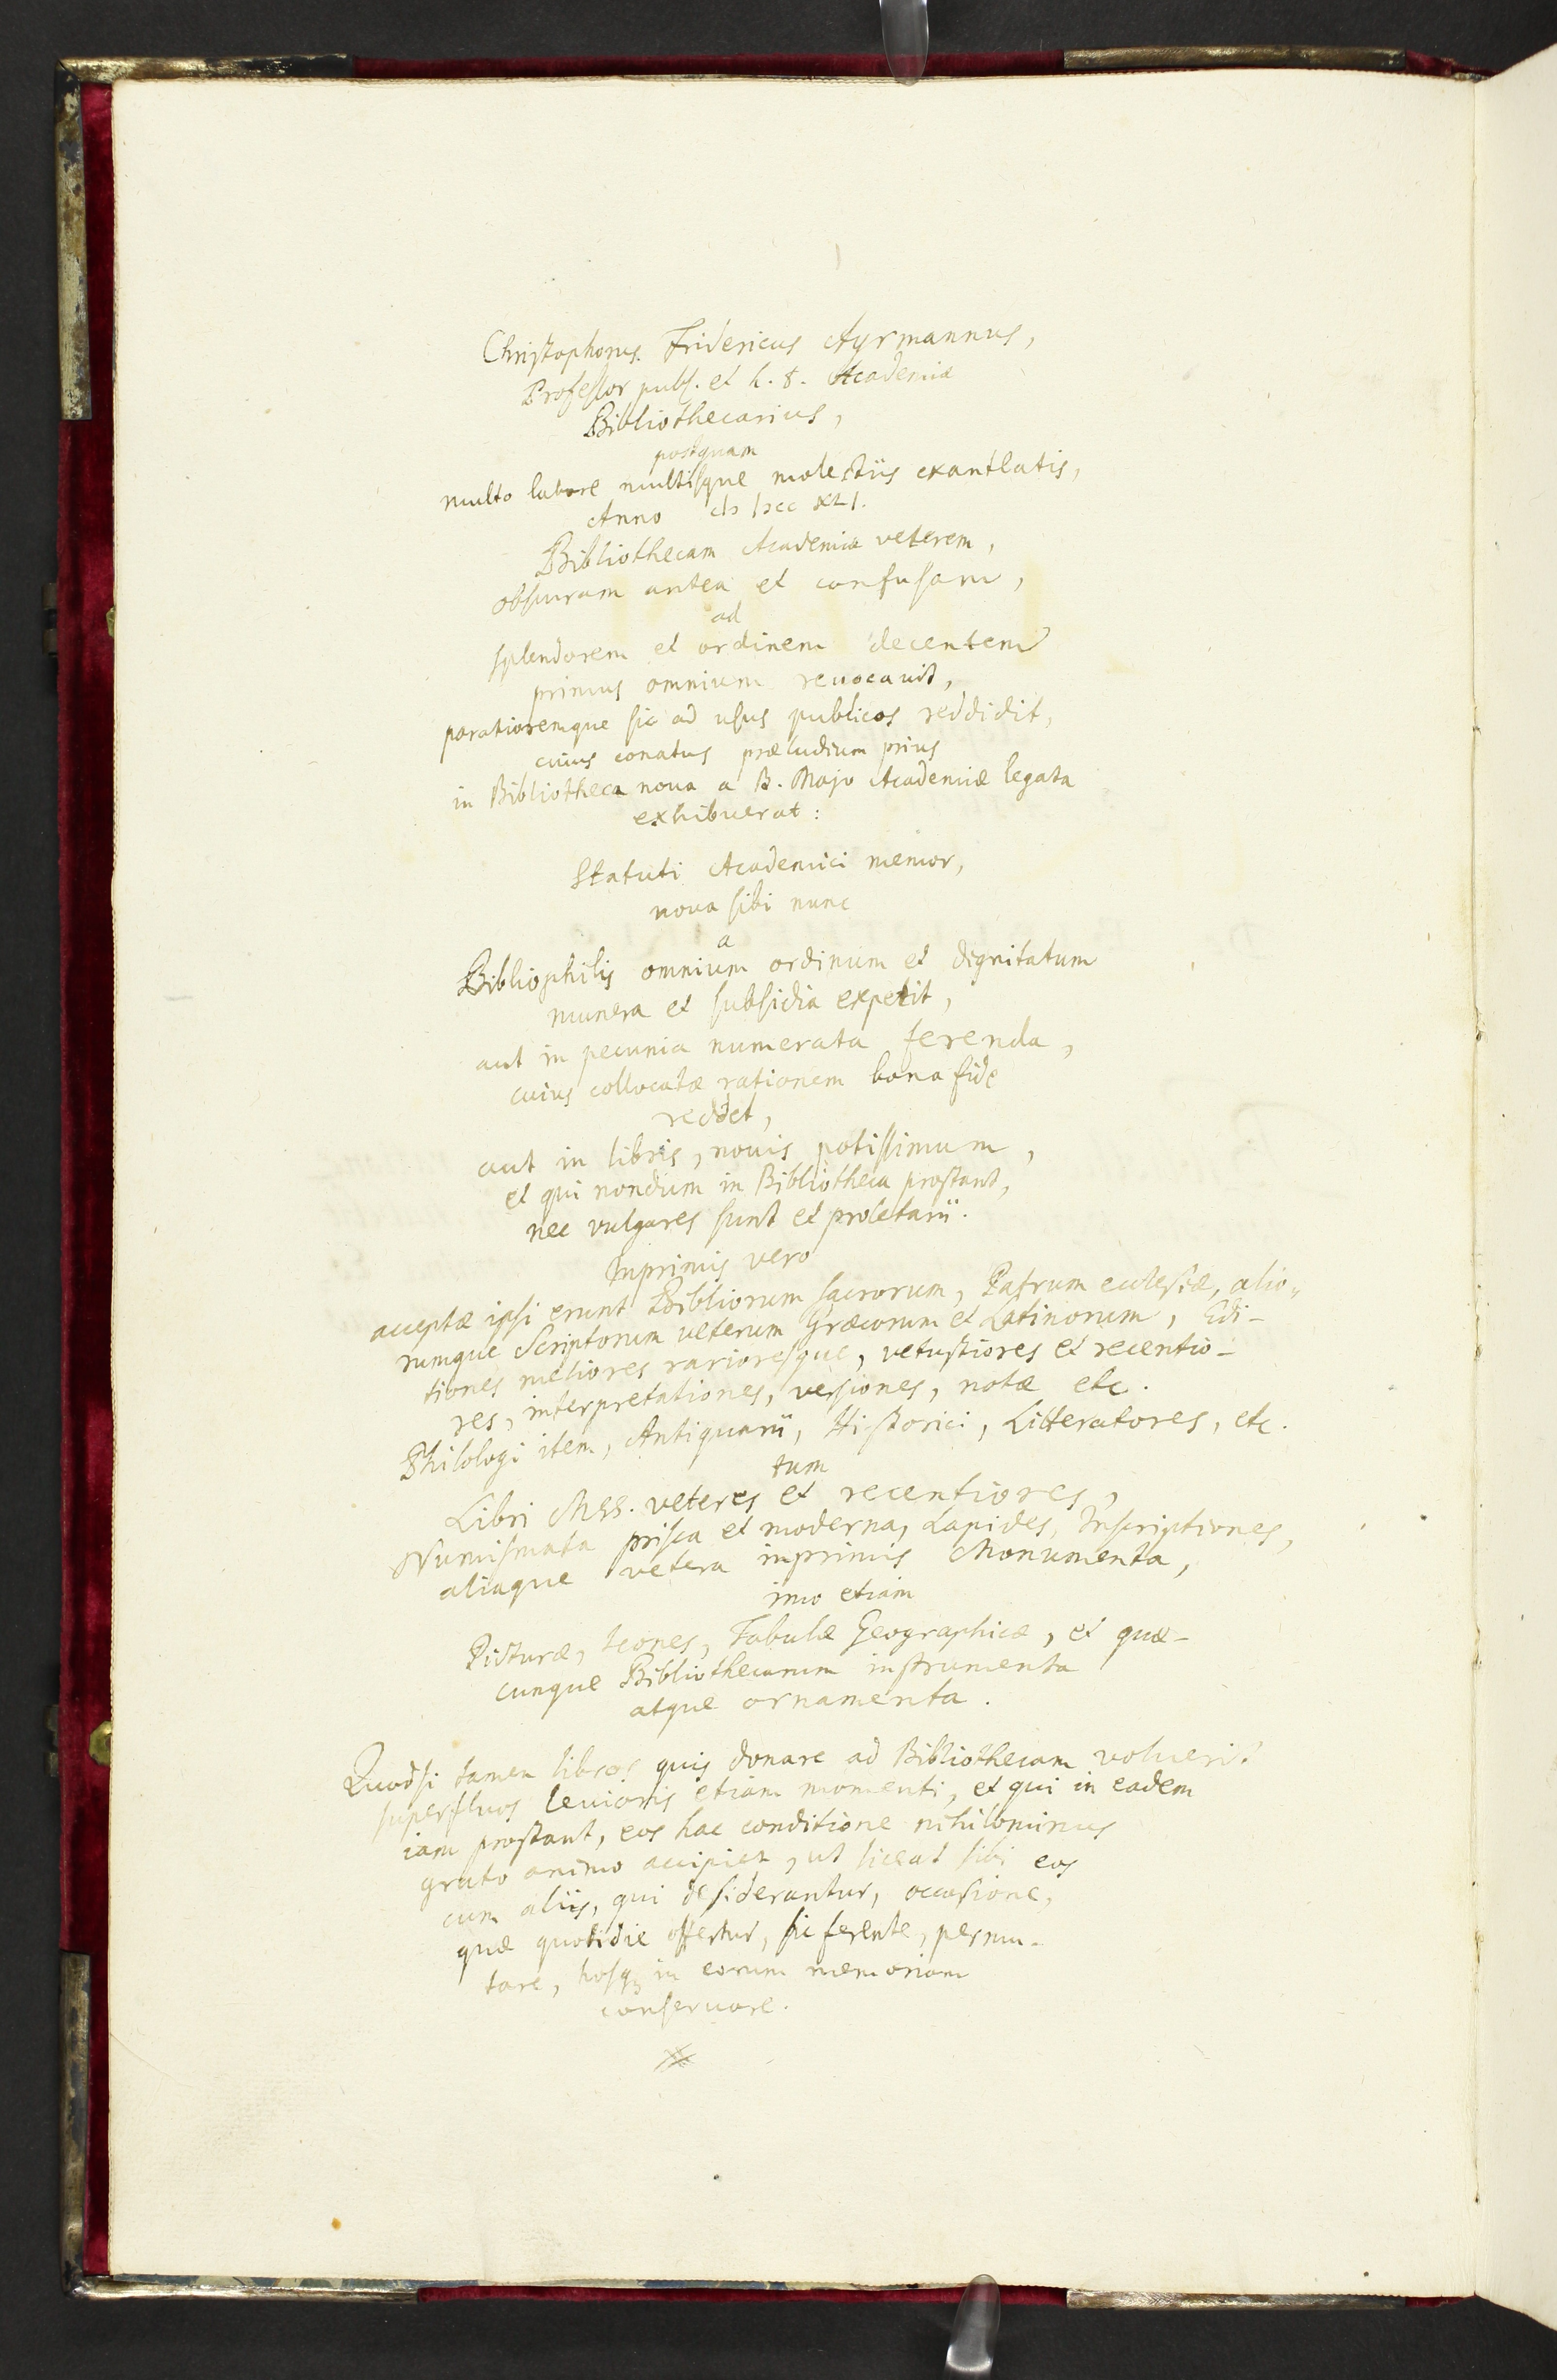 Christophorus Fridericus Ayrmannus,
Professor publ. et h. t. Academiæ
Bibliothecarius,
postquam
multo labore multisque molestiis exantlatis,
Anno cIↄ Iↄcc XLI.
Bibliothecam Academiæ veterem,
obscuram antea et confusam,
ad
splendorem et ordinem decentem
primus omnium reuocauit,
paratioremque sic ad usus publicos reddidit,
cuius conatus præludium prius
in Bibliotheca noua a B. Majo Academiæ legata
exhibuerat:
Statuti Academici memor,
noua sibi nunc
a
Bibliophilis omnium ordinum et dignitatum
munera et subsidia expetit,
aut in pecunia numerata ferenda,
cuius collocatæ rationem bona fide
reddet,
aut in libris, nouis potissimum,
et qui nondum in Bibliotheca prostant,
nec vulgares sunt et proletarii.
Inprimis vero
acceptæ ipsi erunt Bibliorum sacrorum, Patrum ecclesiæ, alio-
rumque Scriptorum veterum Græcorum et Latinorum, Edi-
tiones meliores rarioresque, vetustiores et recentio-
res, interpretationes, versiones, notæ etc.
Philologi item, Antiquarii, Historici, Litteratores, etc.
tum
Libri Mss. veteres et recentiores,
Numismata prisca et moderna, Lapides, Inscriptiones,
aliaque vetera inprimis Monumenta,
imo etiam
Picturæ, Icones, Tabulæ Geographicæ, et quæ-
cunque Bibliothecarum instrumenta
atque ornamenta.
Quodsi tamen libros quis donare ad Bibliothecam voluerit
superfluos leuioris etiam momenti, et qui in eadem
iam prostant, eos hac conditione nihilominus
grato animo accipiet, ut liceat sibi eos
cum aliis, qui desiderantur, occasione,
quæ quotidie offertur, sic ferente, permu-
tare, hosq; in eorum memoriam
conseruare.